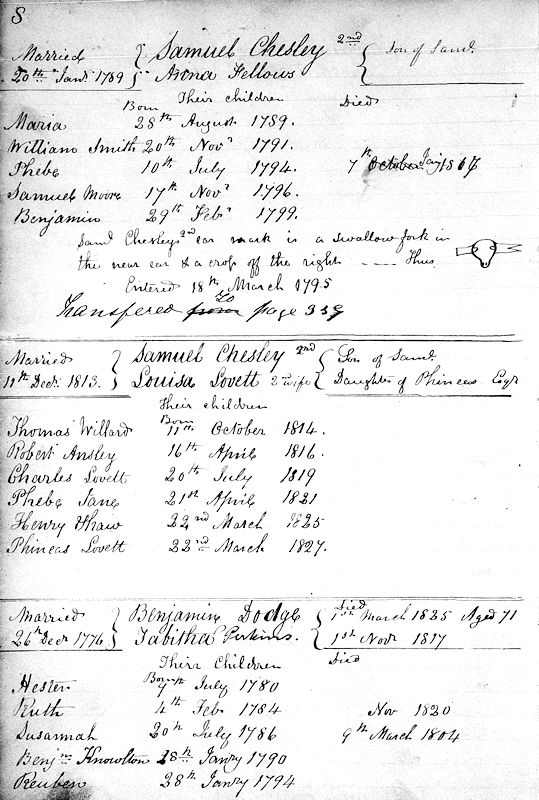 8
Married } Samuel Chesley 2nd { Son of Saml.
20th Jany. 1789 } Anna Fellows
Their children
Born Died
Maria 28th August 1789.
William Smith 20th Novr 1791.
Phebe 10th July 1794. 7th October Jany 1817
Samuel Moore 17th Novr 1796.
Benjamin 29th Febr 1799.
Saml Chesleys 2nd ear mark is a swallow fork in
the near ear & a crop off the right ---- Thus
Entered 18th March 1795
Transfered from to page 359
Married } Samuel Chesley 2nd { Son of Saml.
11th Decr. 1813. } Louisa Lovett 2nd wife { Daughter of Phineas Esqr
Their children
Born
Thomas Willard 11th October 1814.
Robert Ansley 16th April 1816.
Charles Lovett 20th July 1819
Phebe Jane 21st April 1821
Henry Shaw 22nd March 1825
Phineas Lovett 22nd March 1827.
Died
Married } Benjamin Dodge { 1st March 1835 Aged 71
26th Decr 1776 } Tabitha Perkins. { 1st Novr 1817
Their Children Died
Born
Hester 9th July 1780
Ruth 4th Feb 1784 Nov 1820
Susannah 20th July 1786 9th March 1804
Benjn Knowlton 28th Janry 1790
Reuben 28th Janry 1794